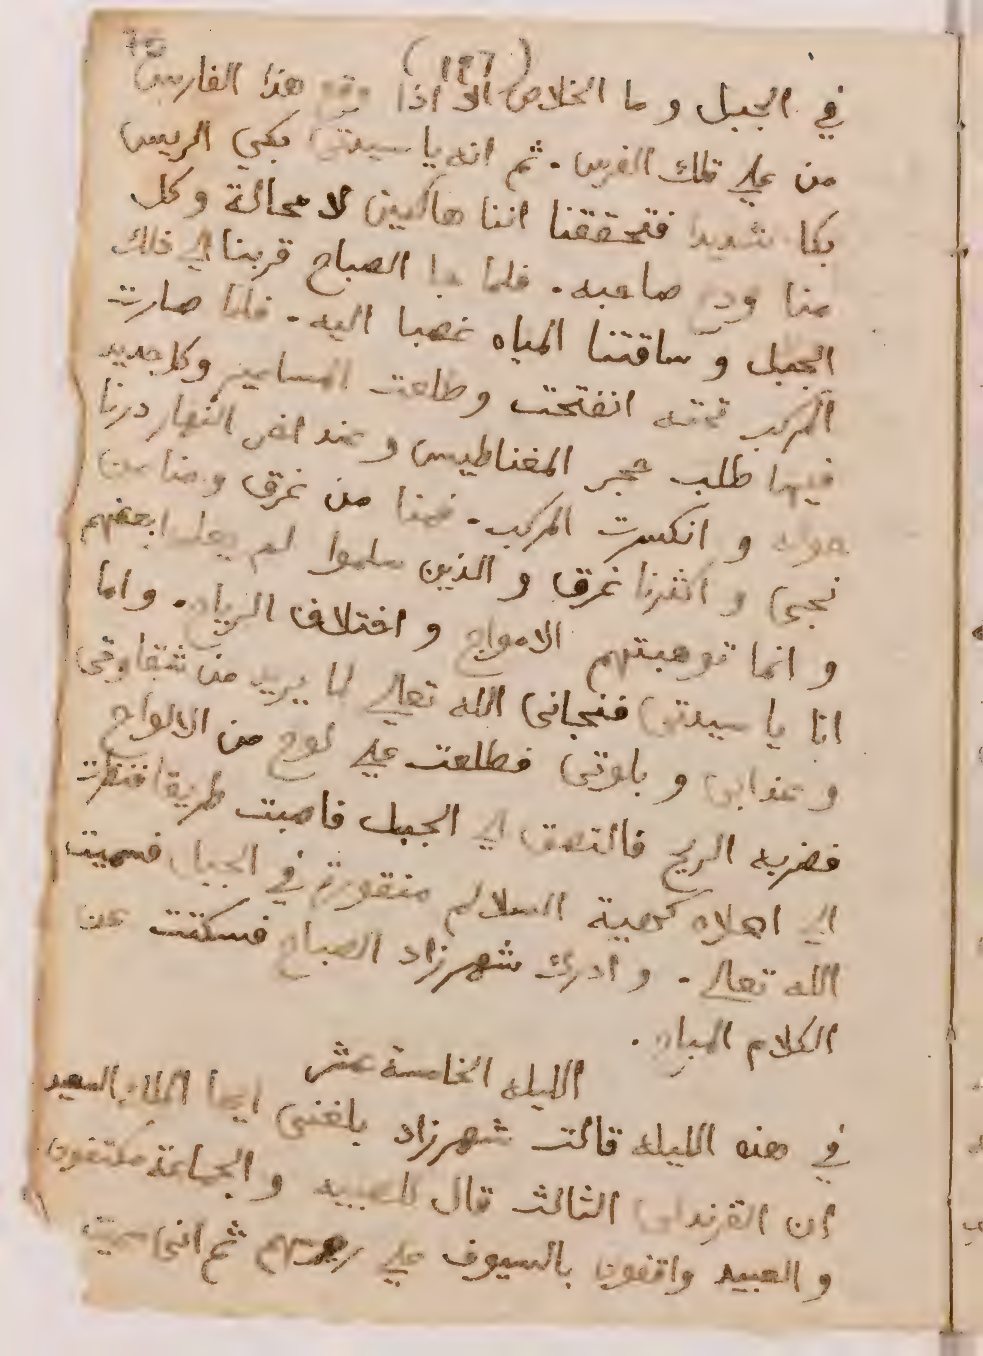 75
(١٤٧)
في الجبل و ما الخلاص الا اذا وقع هذا الفارس
من علي تلك الفرس . ثم انه يا سيدتي بكي الريس
بكا شديدا فتحققنا اننا هالكين لا محالة وكل
منا ودع صاحبه . فلما جا الصباح قربنا الي ذلك
الجبل و ساقتنا المياه غصبا اليه . فلما صارت
المركب تحته انفتحت وطلعت المسامير وكل حديد
فيها طلب حجر المغناطيس و عند اخر النهار درنا
حوله و انكسرت المركب . فمنا من غرق ومنا من
نجي و اكثرنا غرق و الذين سلموا لم يعلموا ببعضهم
و انما توهبتهم الامواج و اختلاف الرياح . واما
انا يا سيدتي فنجاني الله تعالي لما يريد من شقاوتي
و عذابي و بلوتي فطلعت علي لوح من الالواح
فضربه الريح فالتصق الي الجبل فاصبت طريقا فنظرت
الي اعلاه كهية السلالم منقورة في الجبل فسميت
الله تعالي . و ادرك شهرزاد الصباح فسكتت عن
الكلام المباح .
الليله الخامسة عشر
في هذه الليله قالت شهرزاد بلغني ايها الملك السعيد
ان القرندلي الثالث قال للصبيه و الجماعة مكتفون
و العبيد واقفون بالسيوف علي روسهم ثم اني سميت